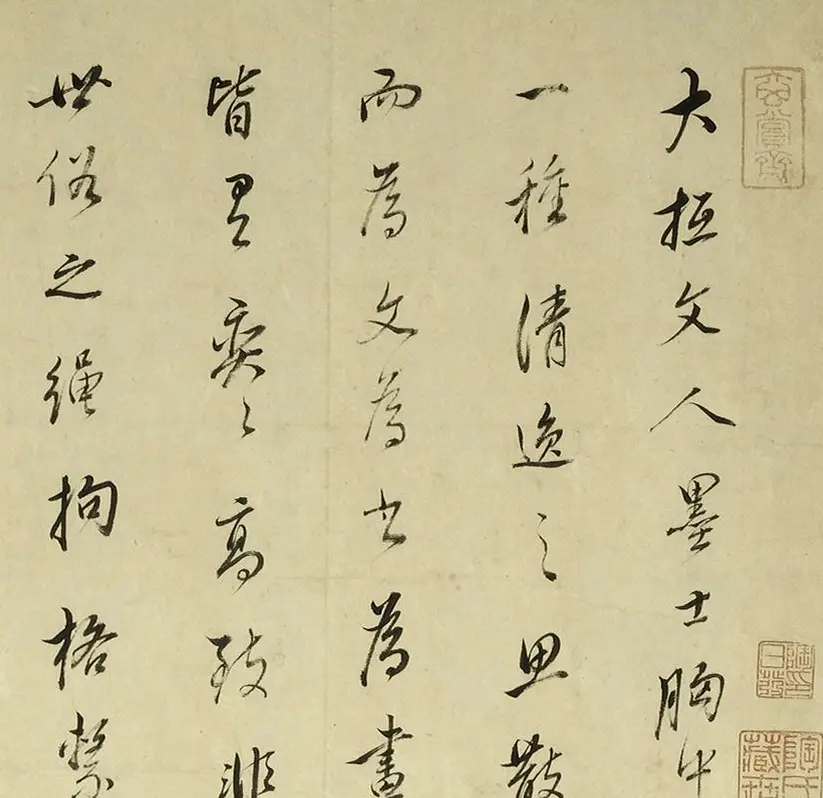 大抵文人墨士胸中
一種清逸之思散
而為文為書為畫
皆具奕〻高致非
世俗之繩拘格